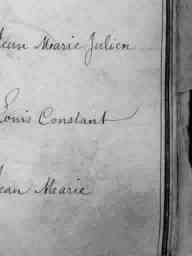 Jean Marie Julien
Louis Constant
Jean Marie